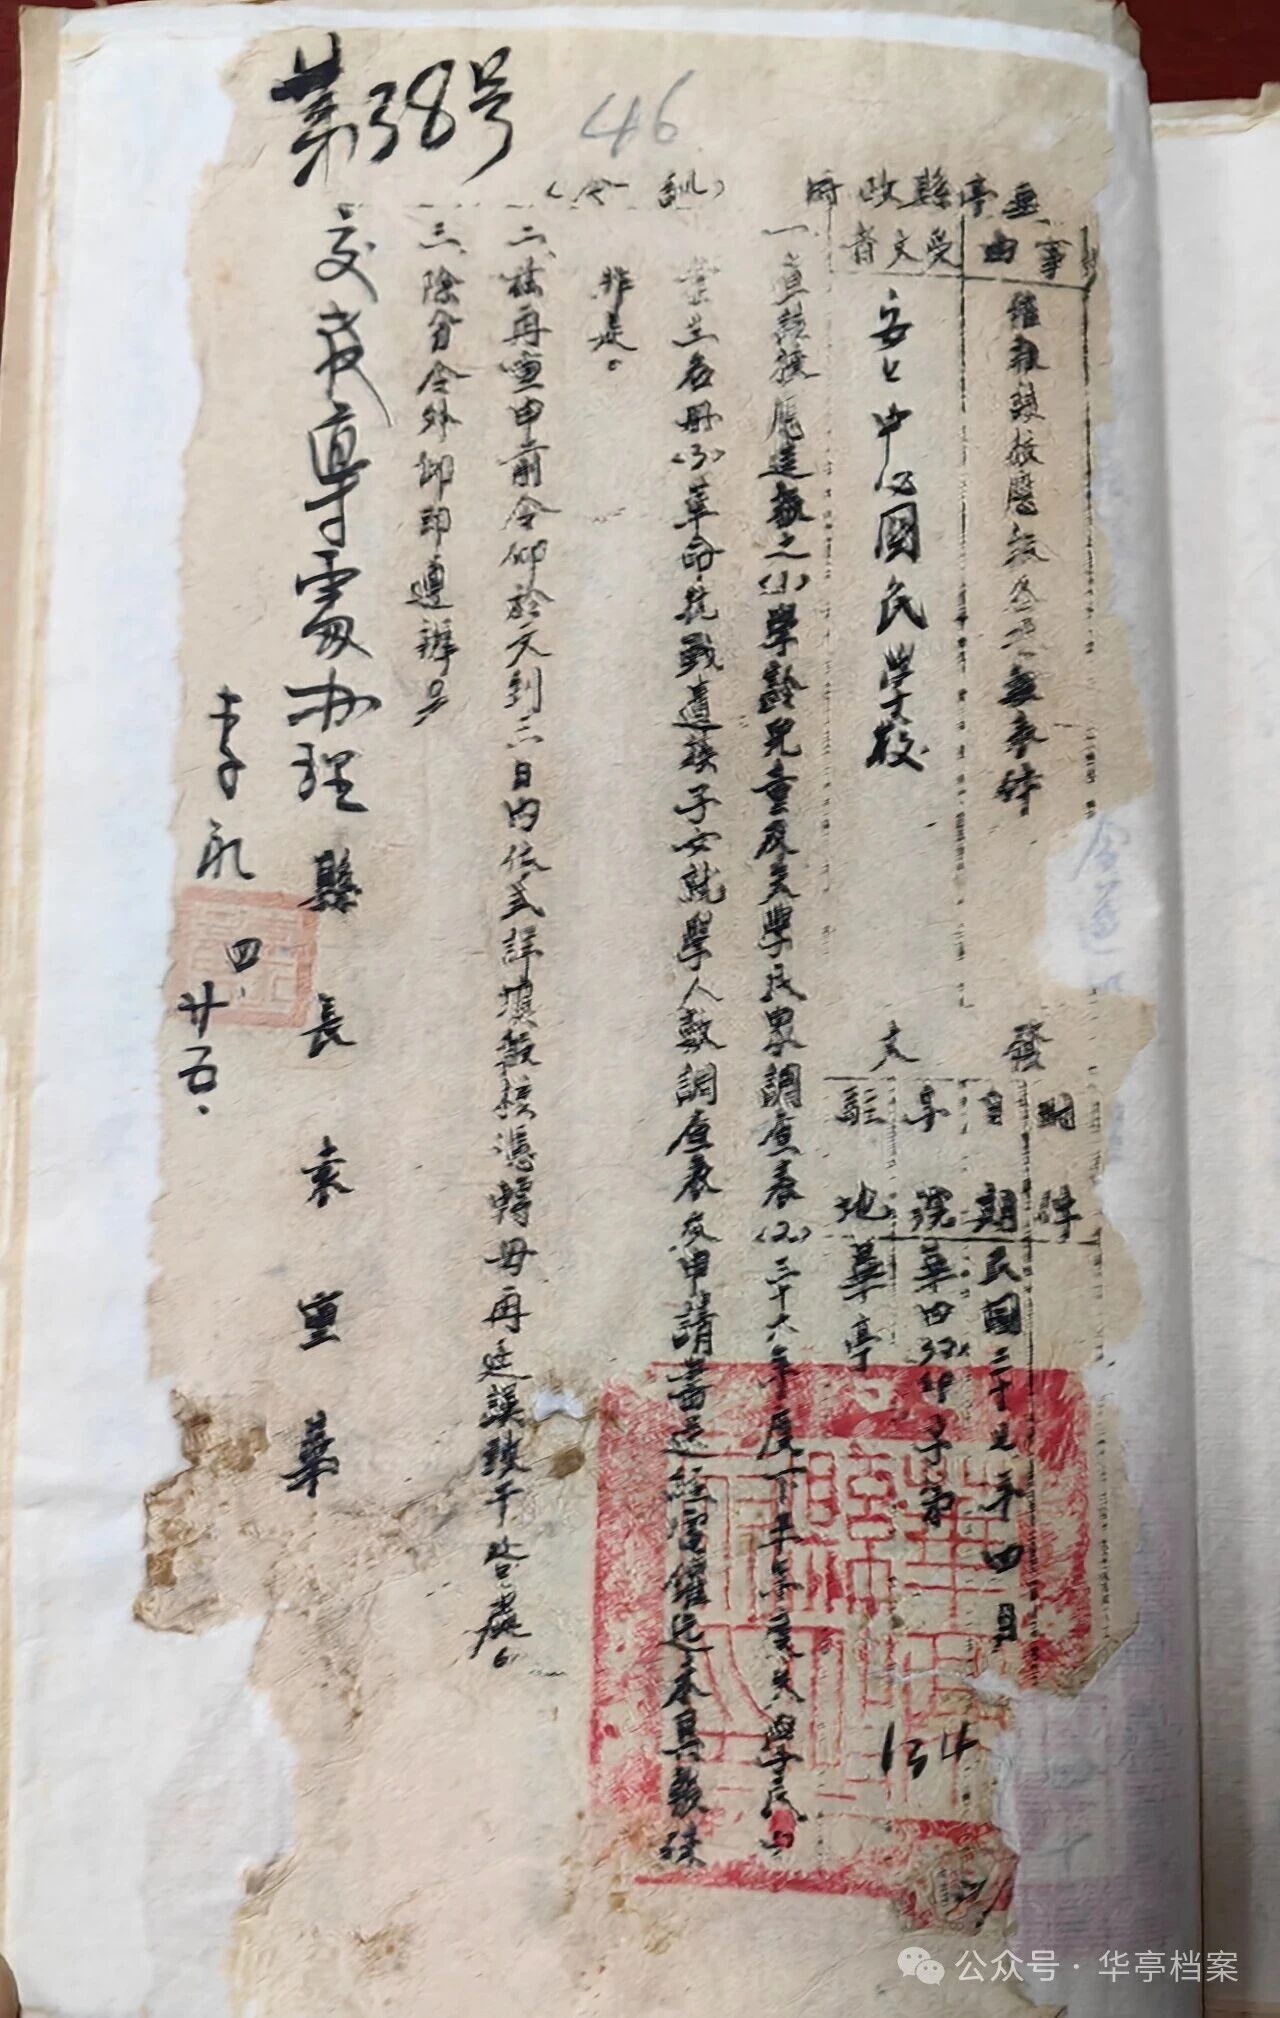 第38号
46
華亭縣政府
(訓令)
事由
催報該校應報各項
表件
受文者
安口中心國民學校
發文
附件
日期
民國三十七年四月
字號
華四
字第
134
駐地
華亭
一、查該校應造報之(1)學齡兒童及失學民眾調查表(2)三十六年度下半年度失學民
業生名册(3)革命抗戰遺族子女就學人數調查表及申請書迭經電催迄未具報殊
非是。
二、茲再重申前令仰於文到三日內依式詳填報核憑轉毋再延誤致干咎處。
三、除分令外仰即遵辦
縣長袁重華
交教導處办理
李
四、廿五.
公众号·华亭档案